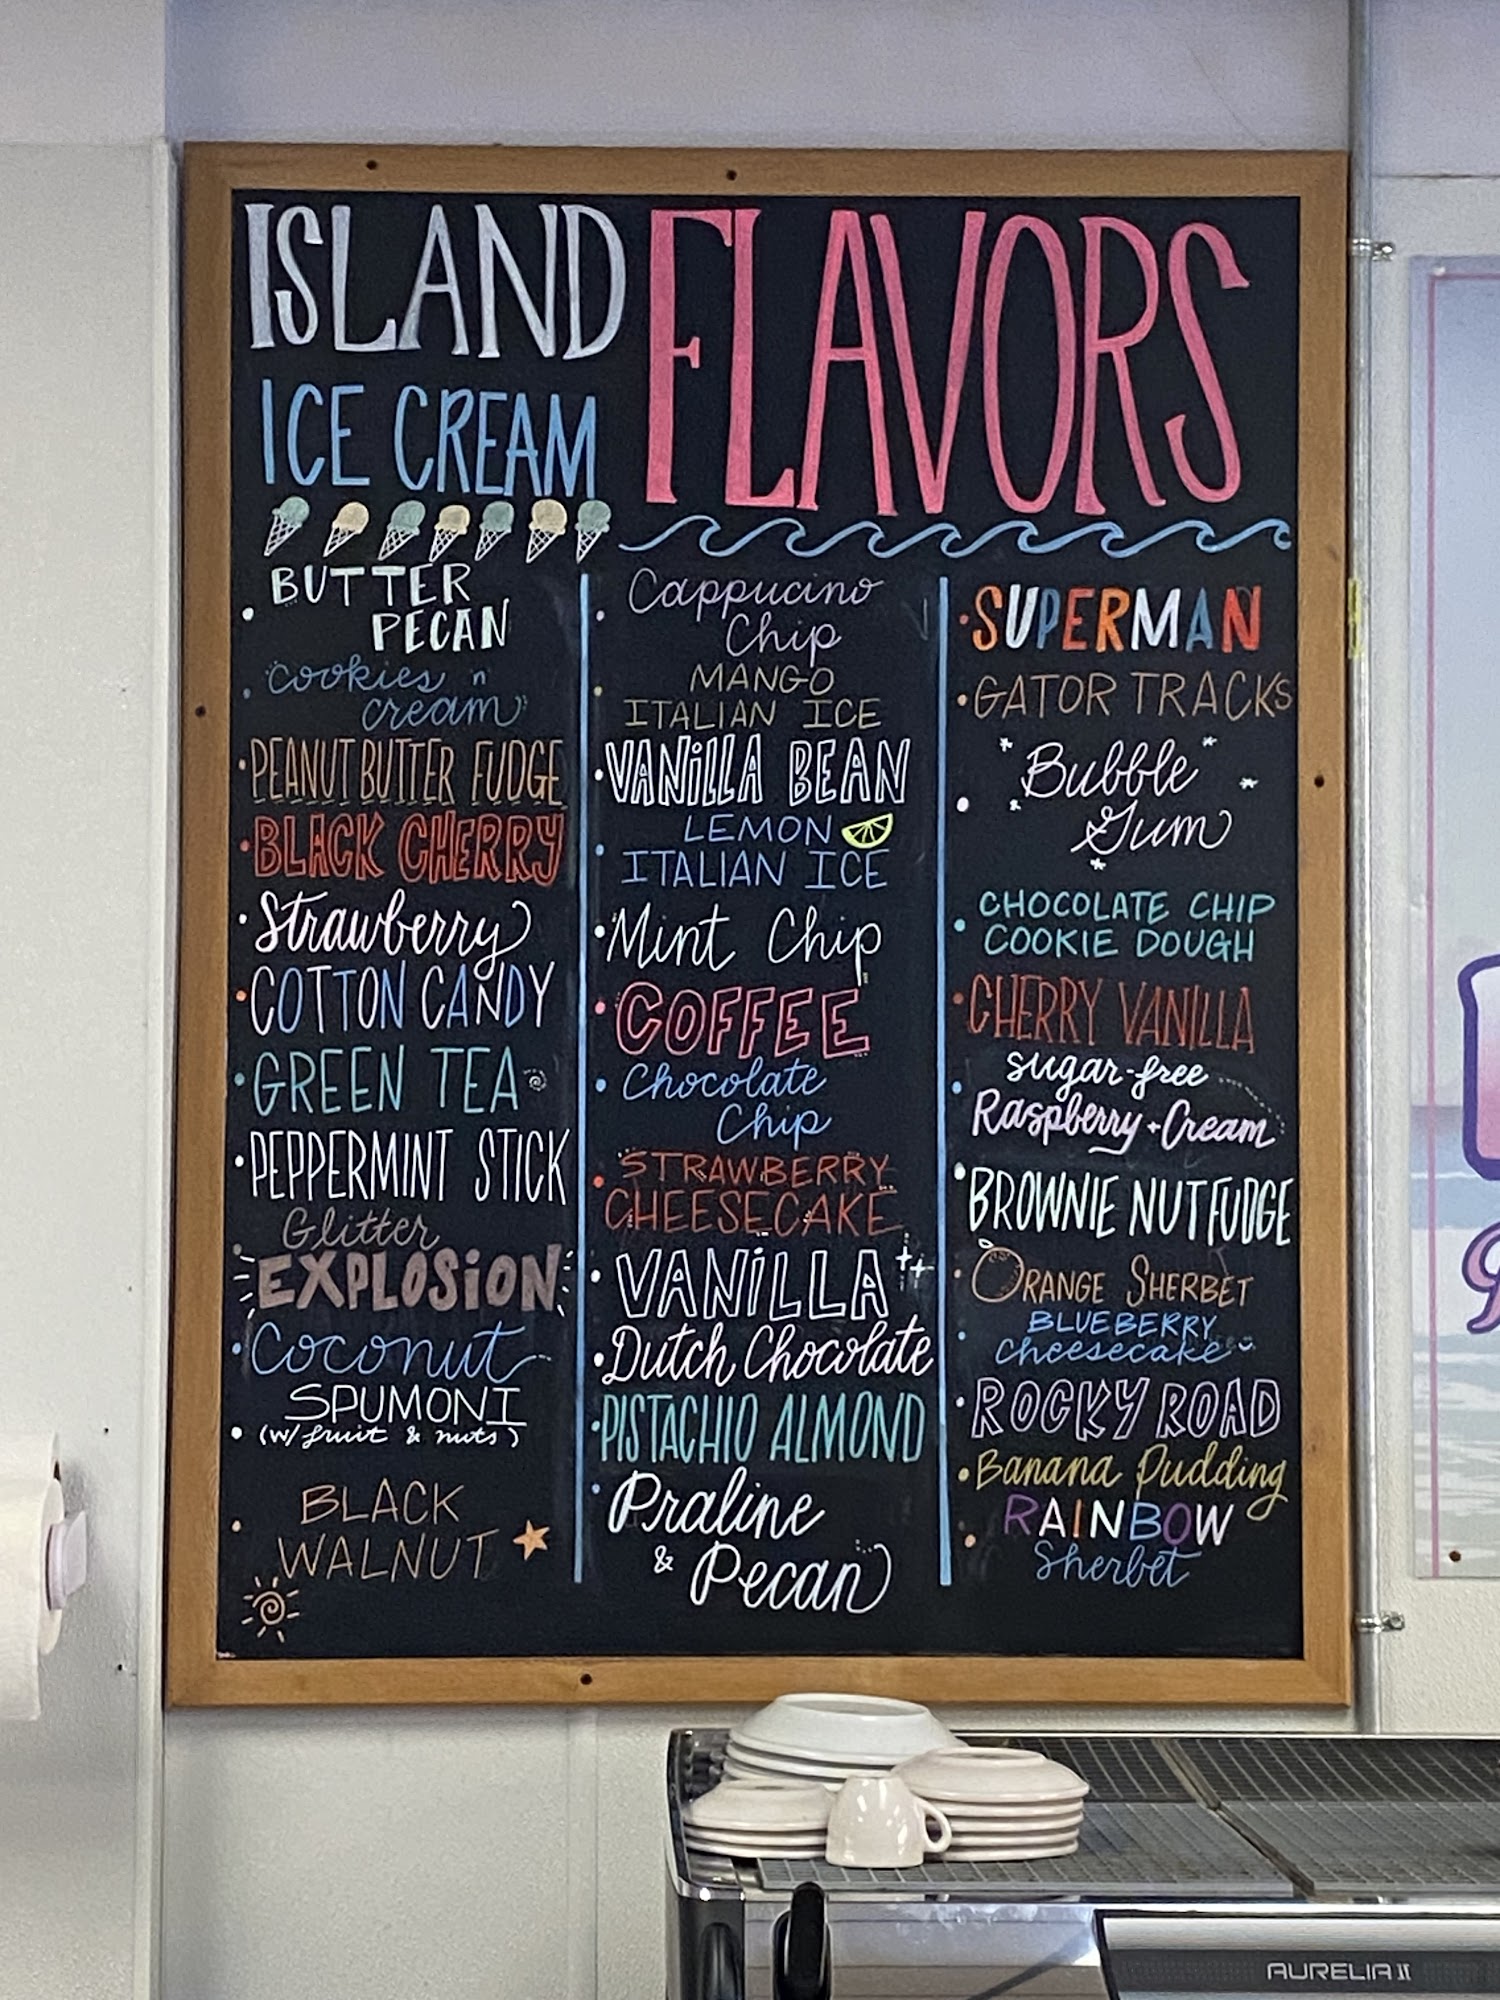 ISLAND FLAVORS
ICE CREAM
BUTTER
PECAN
Cookies n
cream
PEANUT BUTTER FUDGE
BLACK CHERRY
Strawberry
COTTON CANDY
GREEN TEA
PEPPERMINT STICK
Glitter
EXPLOSION
Coconut
SPUMONI
(w/ fruit & nuts)
BLACK
WALNUT
Cappucino
Chip
MANGO
ITALIAN ICE
VANILLA BEAN
LEMON
ITALIAN ICE
Mint Chip
COFFEE
Chocolate
Chip
STRAWBERRY
CHEESECAKE
VANILLA
Dutch Chocolate
PISTACHIO ALMOND
Praline
& Pecan
SUPERMAN
GATOR TRACKS
Bubble
Gum
CHOCOLATE CHIP
COOKIE DOUGH
CHERRY VANILLA
sugar-free
Raspberry + Cream
BROWNIE NUT FUDGE
ORANGE SHERBET
BLUEBERRY
Cheesecake
ROCKY ROAD
Banana Pudding
RAINBOW
Sherbet
AURELIA II